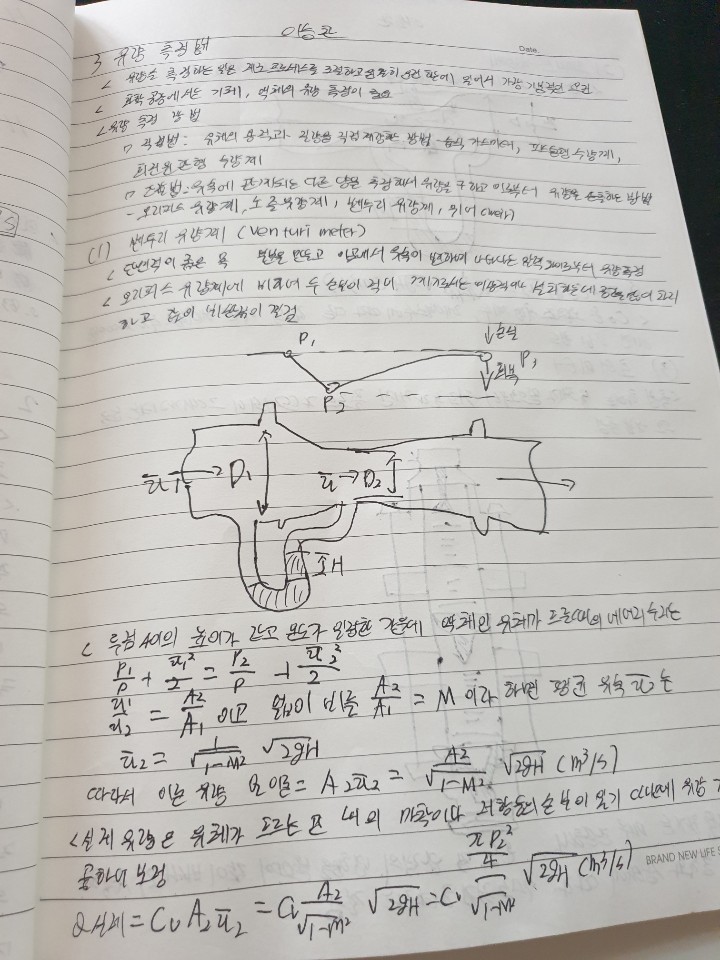 이승관
Date.
3 유량 측정법
< 유량을 측정하는 일은 제조 프로세스를 조절하고 하는 가장 기본적인 조건
< 화학공장에서는 기체, 액체의 유량 측정이 중요
< 유량 측정 방법
ㄱ) 직접법: 유체의 용적과 질량을 직접 재량하는 방법 - 습식 가스미터, 피스톤형 수량계,
회전원판형 수량계
ㄴ) 간접법: 유속에 관계되는 다른 양을 측정해서 유량을 구하고 이로부터 유량을 측정하는 방법
- 오리피스 유량계, 노즐유량계, 벤투리 유량계, 위어 (weir)
(1) 벤투리 유량계 (Venturi meter)
< 단면적이 좁은 목 부분을 만들고 이곳에서 유속이 변하여 나타나는 압력 차이로부터 유량 측정
< 오리피스 유량계에 비하여 두 손실이 적어 계기로서는 이상적이나 설치하는데 공간을 많이
하고 값이 비싼것이 결점
P1
↓손실
P3
↓회복
P2
ū1 → D1
ū → D2
H
< 두점 사이의 높이가 같고 온도가 일정한 관을에 액체인 유체가 흐를때의 베르누이 수식은
P1/ρ + ū1²/2 = P2/ρ + ū2²/2
ū1/ū2 = A2/A1 이고 넓이 비를 A2/A1 = M 이라 하면 평균 유속 ū2는
ū2 = 1/√1-M² √2gH
따라서 이론 유량 Q이론 = A2ū2 = A2/√1-M² √2gH (m³/s)
< 실제 유량은 유체가 흐르는 관 내의 마찰이나 저항등의 손실이 있기 때문에 유량
곱하여 보정
Q실제 = Cv A2 ū2 = Cv A2/√1-M² √2gH = Cv πD2²/4/√1-M² √2gH (m³/s)
BRAND NEW LIFE S